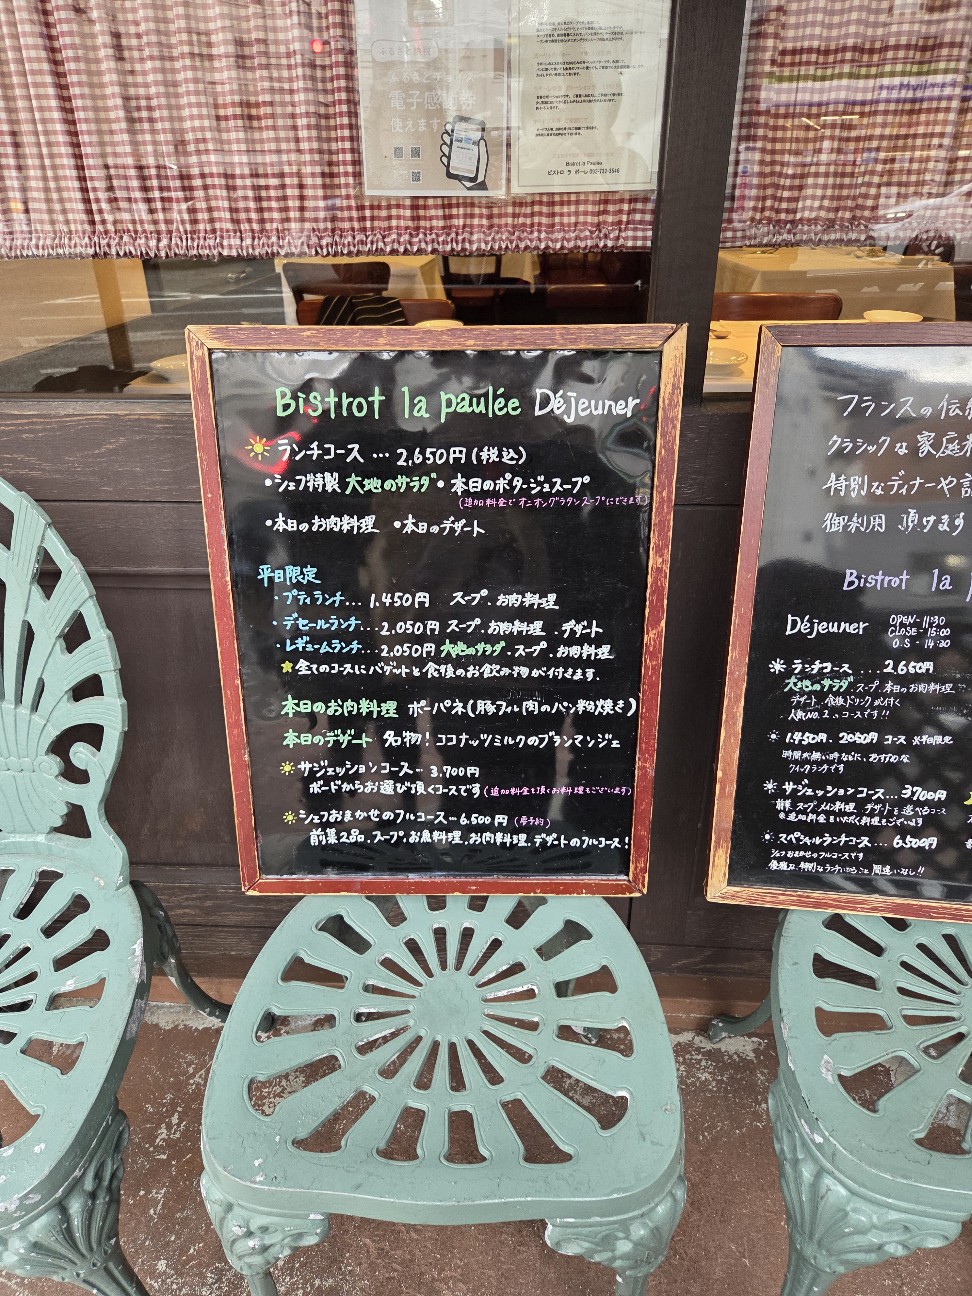 電子感謝券
使えます
Bistrot la Paulée
ビストロ ラ ポーレ 092-732-3546
Bistrot la paulée Déjeuner
ランチコース … 2,650円(税込)
・シェフ特製 大地のサラダ・本日のポタージュスープ
(追加料金でオニオングラタンスープにできます)
・本日のお肉料理 ・本日のデザート
平日限定
・プティランチ… 1.450円 スープ、お肉料理
・デセールランチ…2,050円 スープ、お肉料理、デザート
・レギュームランチ…2,050円 大地のサラダ、スープ、お肉料理
全てのコースにバゲットと食後のお飲み物が付きます.
本日のお肉料理 ポーパネ(豚フィレ肉のパン粉焼き)
本日のデザート 名物! ココナッツミルクのブランマンジェ
サジェッションコース… 3,700円
ボードからお選び頂くコースです(追加料金を頂くお料理もございます)
シェフおまかせのフルコース… 6,500円 (要予約)
前菜2品、スープ、お魚料理、お肉料理、デザートのフルコース!
フランスの伝
クラシックな家庭
特別なディナーや
御利用 頂けます
Bistrot la
Déjeuner
OPEN-11:30
CLOSE-15:00
O.S-14:20
ランチコース ...2,650円
大地のサラダ、スープ、本日のお肉料理
デザート、食後ドリンクが付く
人気NO.2のコースです!!
1.450円、2050円 コース ※平日限定
時間が無い時などに、おすすめな
クイックランチです
サジェッションコース...3700円
前菜 スープ メイン料理 デザートを選べるコース
※追加料金をいただく料理もございます
スペシャルランチコース... 6500円
シェフおまかせのフルコースです
優雅な、特別なランチになること間違いなし!!